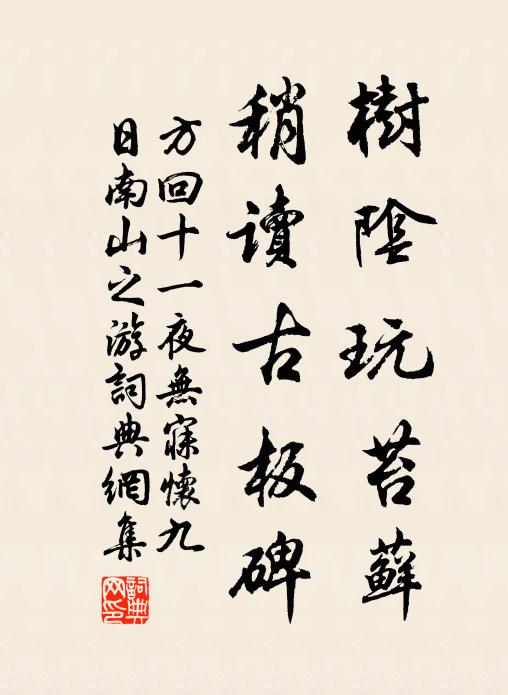 樹陰玩苔蘚
稍讀古板碑
方回十一夜無寐懷九
日南山之游詞典網集
詞典
网印